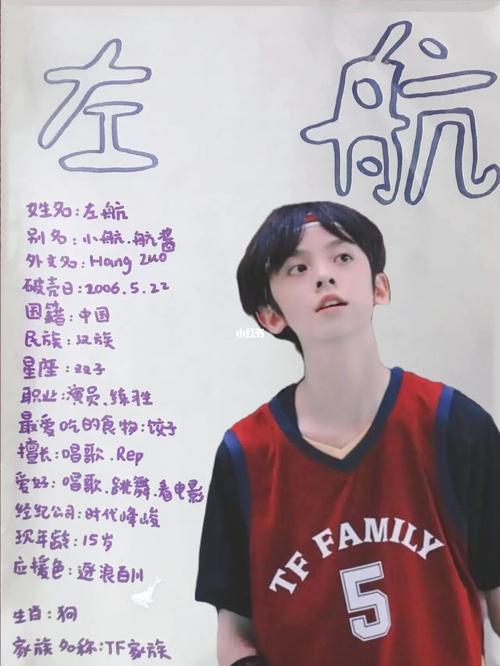 左航
姓名:左航
别名:小航.航酱
外文名:Hang Zuo
破壳日:2006.5.22
国籍:中国
民族:汉族
星座:双子
职业:演员.练习生
最爱吃的食物:饺子
擅长:唱歌.Rep
爱好:唱歌.跳舞.看电影
经纪公司:时代峰峻
现年龄:15岁
应援色:逐浪百川
生肖:狗
家族名称:TF家族
小红书
TF FAMILY
5